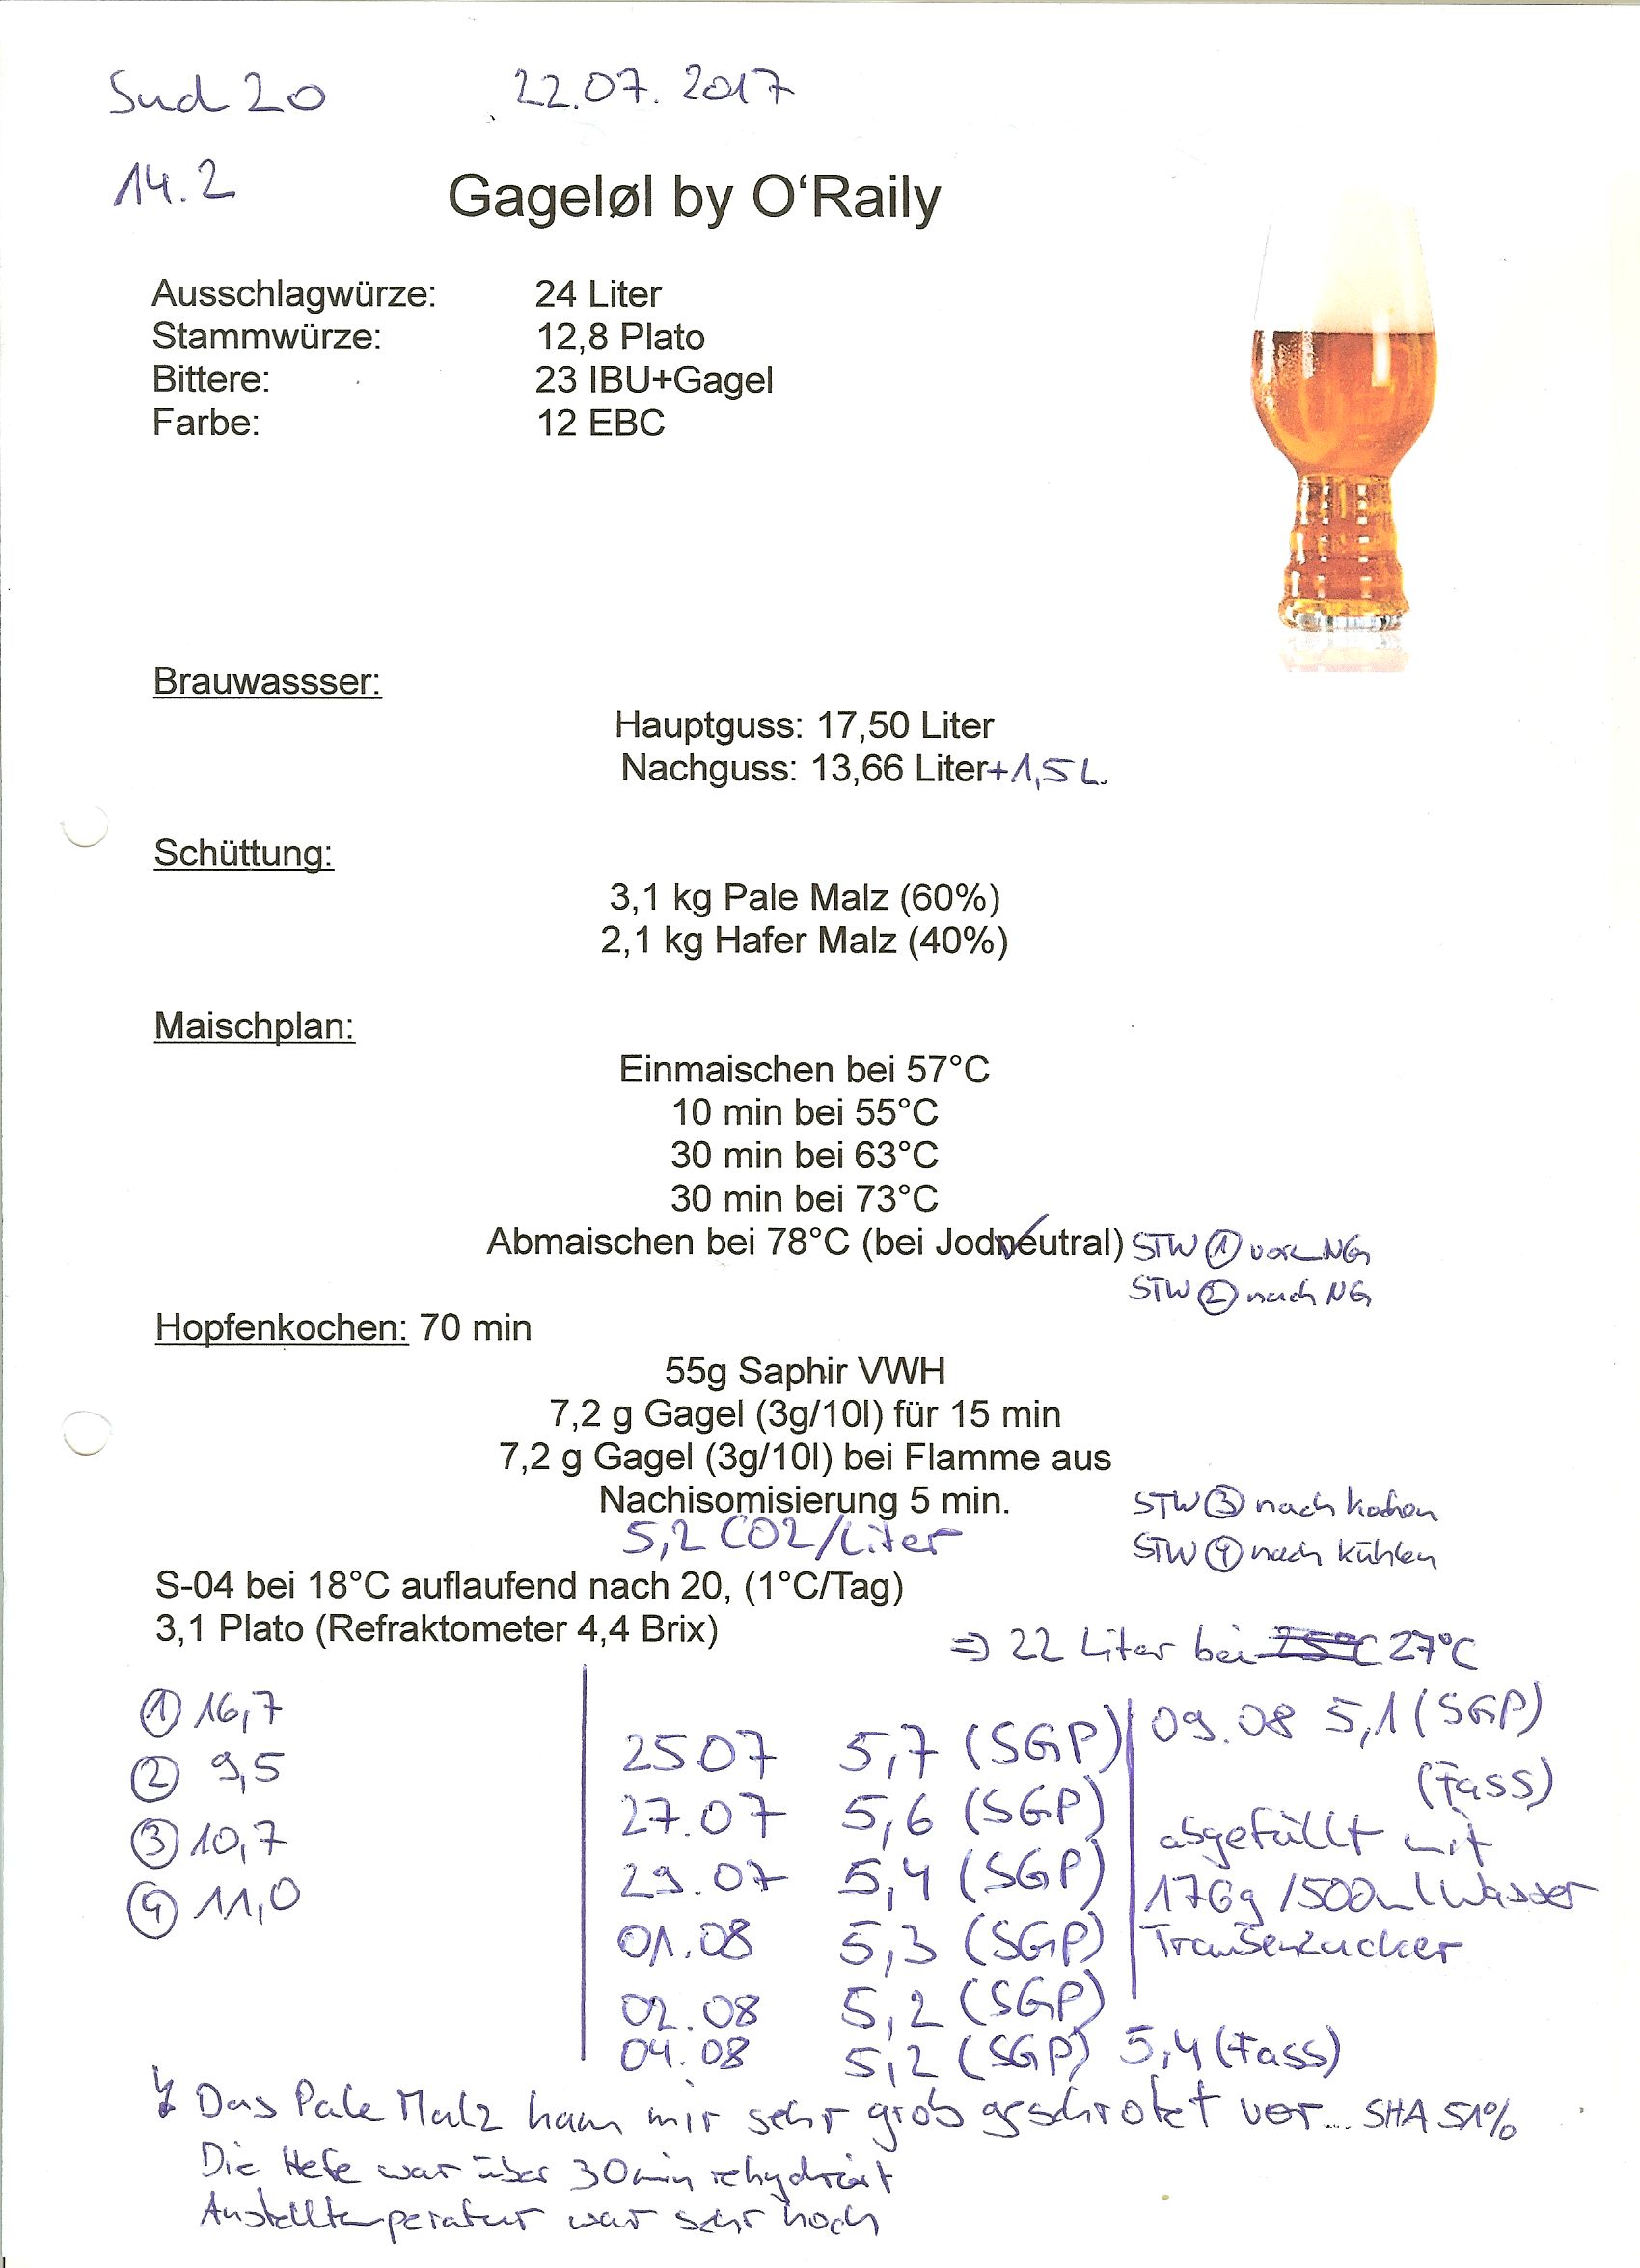 Sud 20 22.07.2017
14.2
Gageløl by O‘Raily
Ausschlagwürze: 24 Liter
Stammwürze: 12,8 Plato
Bittere: 23 IBU+Gagel
Farbe: 12 EBC
Brauwassser:
Hauptguss: 17,50 Liter
Nachguss: 13,66 Liter+1,5 L.
Schüttung:
3,1 kg Pale Malz (60%)
2,1 kg Hafer Malz (40%)
Maischplan:
Einmaischen bei 57°C
10 min bei 55°C
30 min bei 63°C
30 min bei 73°C
Abmaischen bei 78°C (bei Jodneutral) STW ① vor NG
STW ② nach NG
Hopfenkochen: 70 min
55g Saphir VWH
7,2 g Gagel (3g/10l) für 15 min
7,2 g Gagel (3g/10l) bei Flamme aus
Nachisomisierung 5 min. STW ③ nach kochen
5,2 CO2/Liter STW ④ nach kühlen
S-04 bei 18°C auflaufend nach 20, (1°C/Tag)
3,1 Plato (Refraktometer 4,4 Brix)
⇒ 22 Liter bei 25°C 27°C
① 16,7
② 9,5
③ 10,7
④ 11,0
25 07 5,7 (SGP)
27.07 5,6 (SGP)
29.07 5,4 (SGP)
01.08 5,3 (SGP)
02.08 5,2 (SGP)
04.08 5,2 (SGP) 5,4 (Fass)
09.08 5,1 (SGP)
(Fass)
abgefüllt mit
176g /500ml Wasser
Traubenzucker
Das Pale Malz kam mir sehr grob geschrotet vor... SHA 51%
Die Hefe war über 30min rehydriert
Anstelltemperatur war sehr hoch